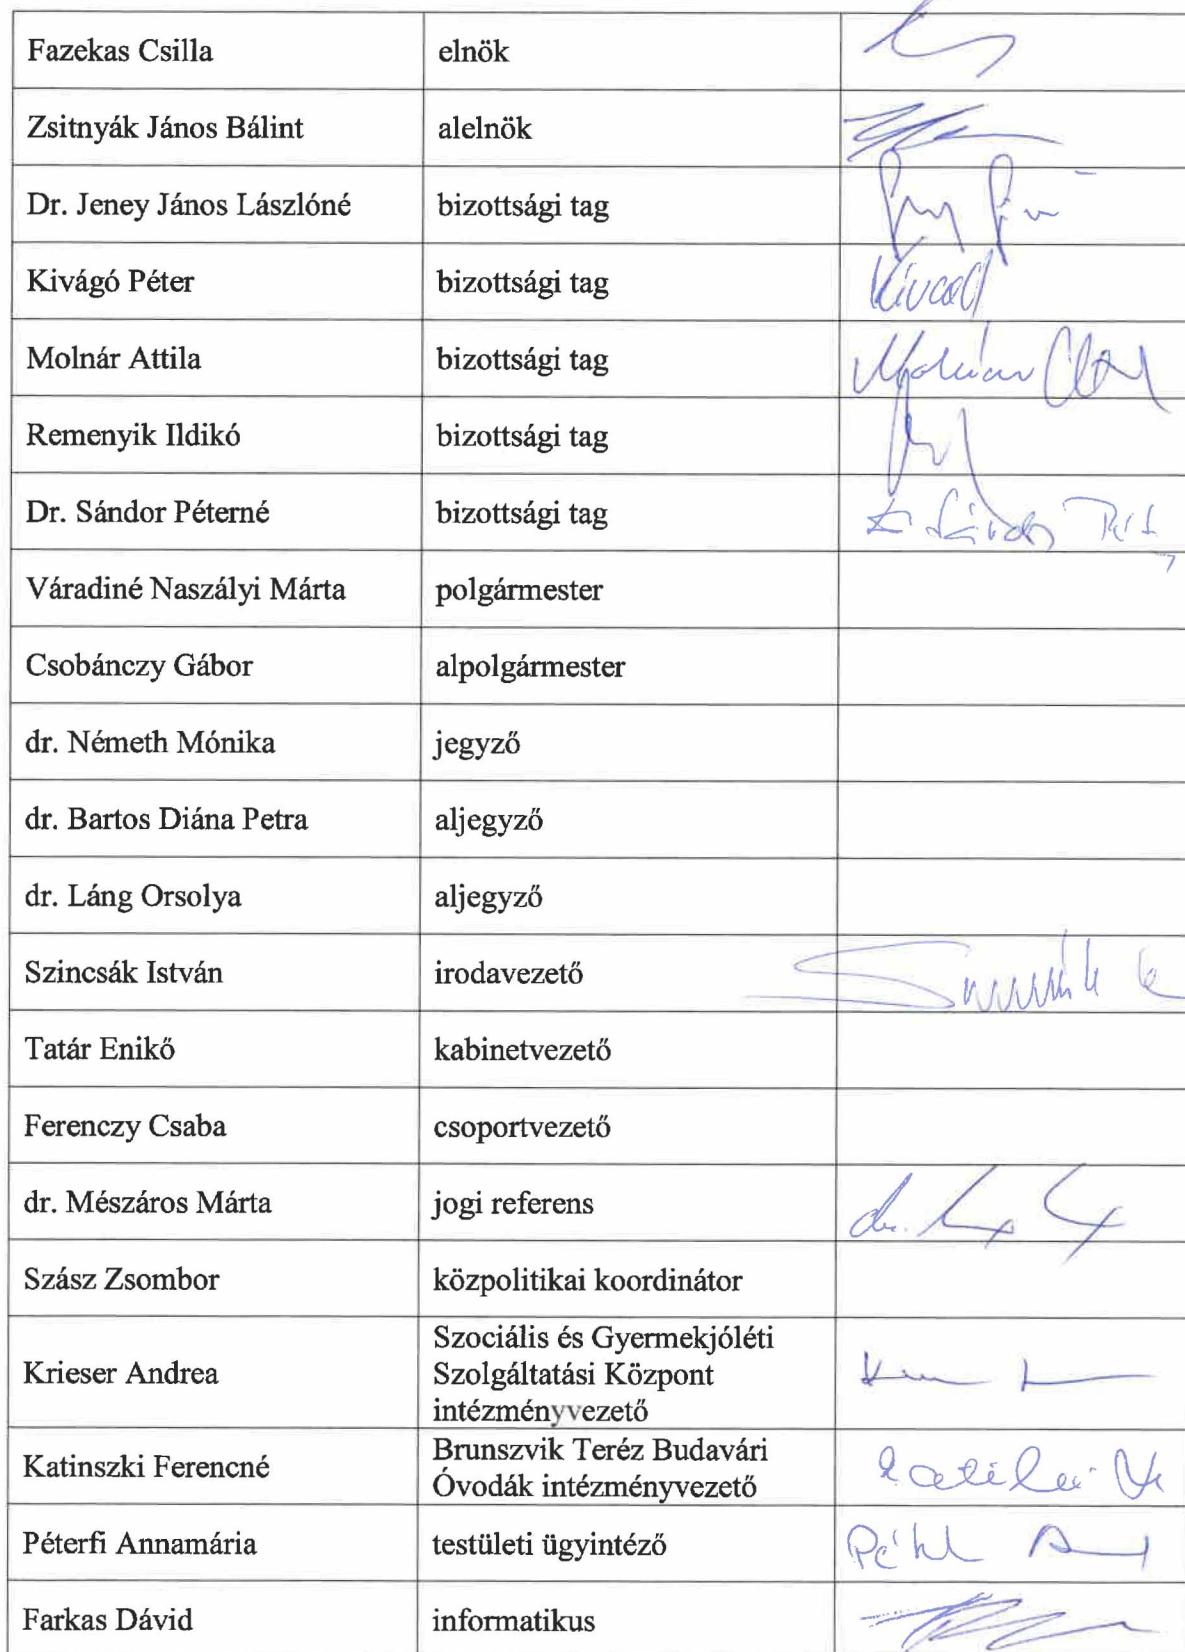 Fazekas Csilla elnök
Zsitnyák János Bálint alelnök
Dr. Jeney János Lászlóné bizottsági tag
Kivágó Péter bizottsági tag
Molnár Attila bizottsági tag
Remenyik Ildikó bizottsági tag
Dr. Sándor Péterné bizottsági tag
Váradiné Naszályi Márta polgármester
Csobánczy Gábor alpolgármester
dr. Németh Mónika jegyző
dr. Bartos Diána Petra aljegyző
dr. Láng Orsolya aljegyző
Szincsák István irodavezető
Tatár Enikő kabinetvezető
Ferenczy Csaba csoportvezető
dr. Mészáros Márta jogi referens
dr.
Szász Zsombor közpolitikai koordinátor
Krieser Andrea
Szociális és Gyermekjóléti
Szolgáltatási Központ
intézményvezető
Katinszki Ferencné
Brunszvik Teréz Budavári
Óvodák intézményvezető
Péterfi Annamária testületi ügyintéző
Farkas Dávid informatikus